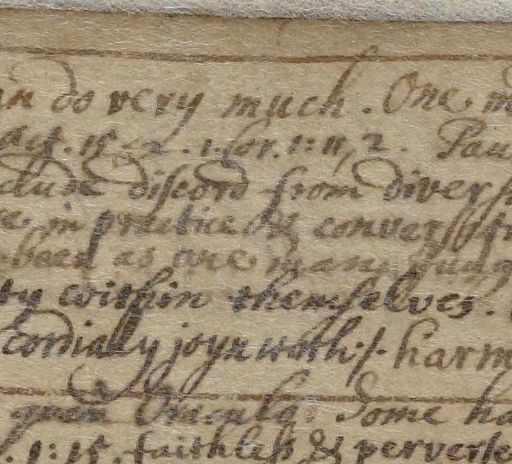 do very much. One
Act. 15. 2. 1. Cor. 1: 11, 2. Pau
discord from divers
in practice & convers
as are many
ty within themselves.
cordially joyn with harm
Oracula. Some ha
1: 15. faithless & perverse